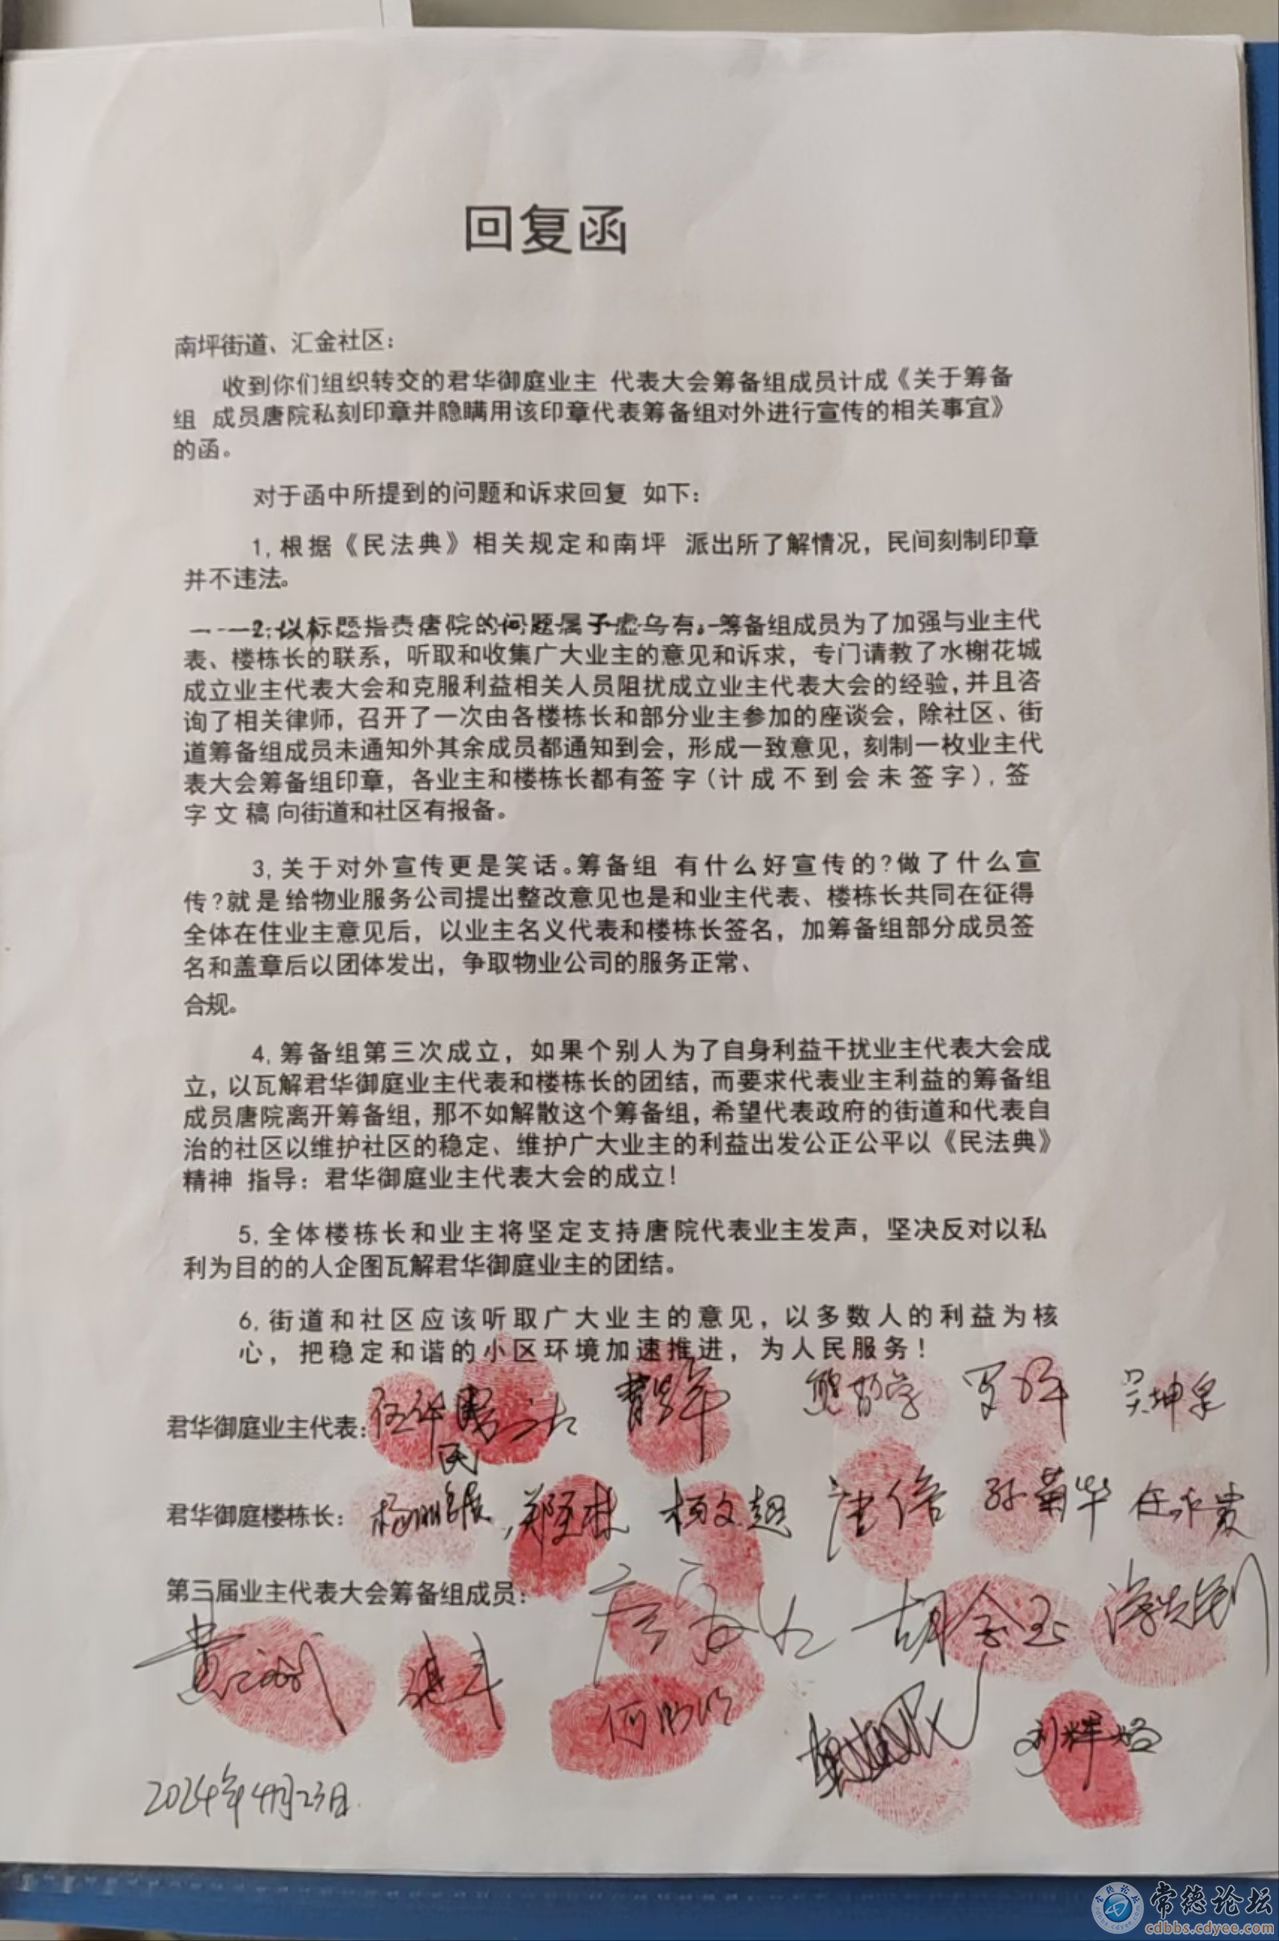 回复函
南坪街道、汇金社区：
收到你们组织转交的君华御庭业主 代表大会筹备组成员计成《关于筹备
组 成员唐院私刻印章并隐瞒用该印章代表筹备组对外进行宣传的相关事宜》
的函。
对于函中所提到的问题和诉求回复 如下：
1,根据《民法典》相关规定和南坪 派出所了解情况，民间刻制印章
并不违法。
2,以标题指责唐院的问题属于虚乌有。筹备组成员为了加强与业主代
表、楼栋长的联系，听取和收集广大业主的意见和诉求，专门请教了水榭花城
成立业主代表大会和克服利益相关人员阻扰成立业主代表大会的经验,并且咨
询了相关律师，召开了一次由各楼栋长和部分业主参加的座谈会，除社区、街
道筹备组成员未通知外其余成员都通知到会，形成一致意见，刻制一枚业主代
表大会筹备组印章，各业主和楼栋长都有签字(计成不到会未签字),签
字文稿向街道和社区有报备。
3,关于对外宣传更是笑话。筹备组 有什么好宣传的?做了什么宣
传?就是给物业服务公司提出整改意见也是和业主代表、楼栋长共同在征得
全体在住业主意见后，以业主名义代表和楼栋长签名，加筹备组部分成员签
名和盖章后以团体发出，争取物业公司的服务正常、
合规。
4,筹备组第三次成立，如果个别人为了自身利益干扰业主代表大会成
立，以瓦解君华御庭业主代表和楼栋长的团结，而要求代表业主利益的筹备组
成员唐院离开筹备组，那不如解散这个筹备组，希望代表政府的街道和代表自
治的社区以维护社区的稳定、维护广大业主的利益出发公正公平以《民法典》
精神 指导：君华御庭业主代表大会的成立！
5,全体楼栋长和业主将坚定支持唐院代表业主发声，坚决反对以私
利为目的的人企图瓦解君华御庭业主的团结。
6,街道和社区应该听取广大业主的意见，以多数人的利益为核
心，把稳定和谐的小区环境加速推进，为人民服务！
君华御庭业主代表： 吴坤泉
君华御庭楼栋长： 杨文超 唐倍 孙菊华 任永贵
第三届业主代表大会筹备组成员：
胡金玉
刘辉
2024年4月23日
常德论坛
cdbbs.cdyee.com